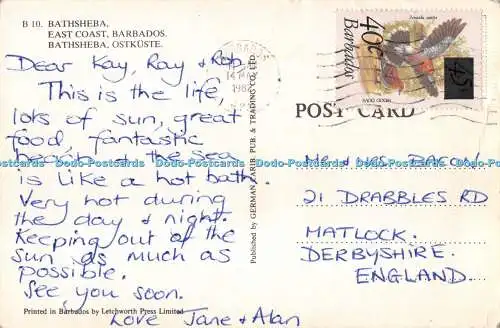 B 10. BATHSHEBA,
EAST COAST, BARBADOS.
BATHSHEBA, OSTKÜSTE.
Dear Kay, Ray & Rob,
This is the life,
lots of sun, great
food, fantastic
the sea
is like a hot bath.
Very hot during
the day & night.
Keeping out of the
sun as much as
possible.
See you soon.
Love Jane & Alan
Printed in Barbados by Letchworth Press Limited
Published by GERMAN CARIB. PUB. & TRADING CO., LTD.
Barbados
40c
45
POST CARD
MR & MRS
21 DRABBLES RD
MATLOCK.
DERBYSHIRE.
ENGLAND.
Dodo-Postcards Dodo-Postcards Dodo-Postcards Dodo-Postcards Dodo-Postcards